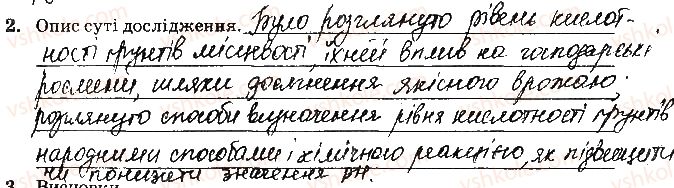 2. Опис суті дослідження. Було розглянуто рівень кислот-
ності ґрунтів місцевості, їхній вплив на господарські
рослини, шляхи досягнення якісного врожаю;
розглянуто способи визначення рівня кислотності ґрунтів
народними способами і хімічного реакцією, як підвищити
чи понизити значення pH.
3. Висновки